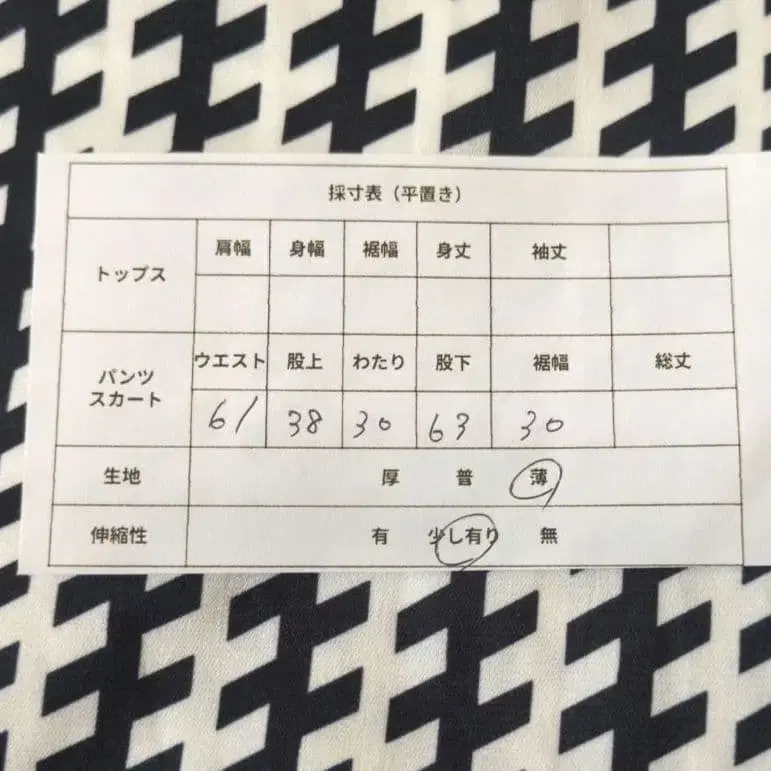 採寸表（平置き）
トップス 肩幅 身幅 裾幅 身丈 袖丈
パンツ スカート ウエスト 股上 わたり 股下 裾幅 総丈
61 38 30 63 30
生地 厚 普 薄
伸縮性 有 少し有り 無